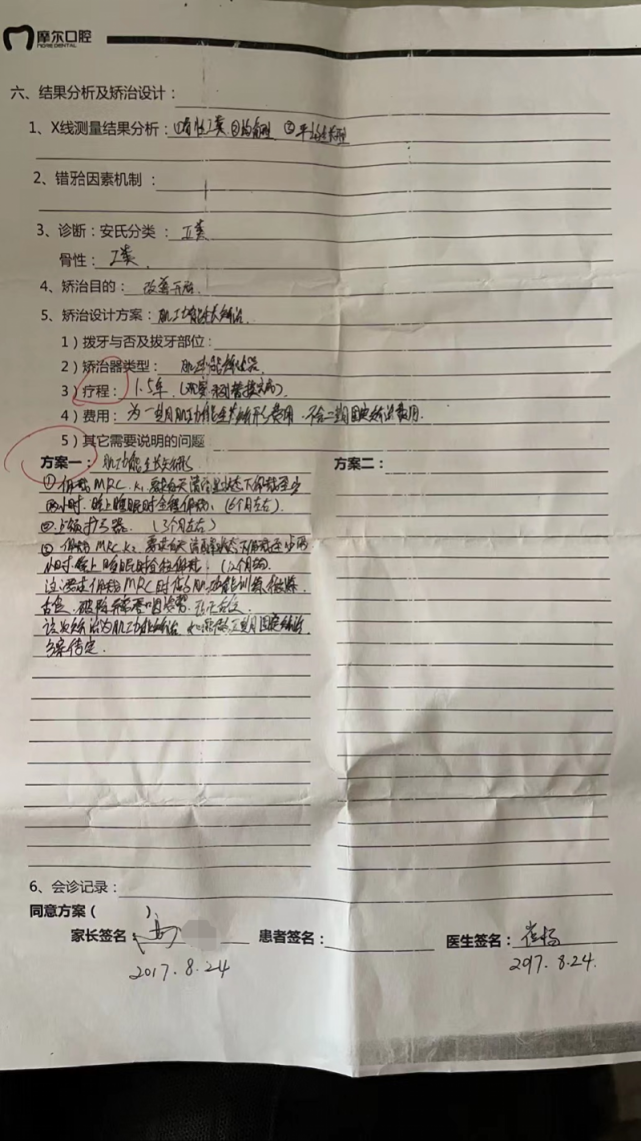 摩尔口腔
MORE DENTAL
六、结果分析及矫治设计：
1、X线测量结果分析：①骨性II类 ②均角型 ③
2、错𬌗因素机制：
3、诊断：安氏分类：II类
骨性：II类
4、矫治目的：改善开𬌗
5、矫治设计方案：肌功能矫治
1）拨牙与否及拨牙部位：
2）矫治器类型：肌功能矫治器
3）疗程：1.5年（
4）费用：为一期肌功能矫形费用，不含二期固定矫治费用.
5）其它需要说明的问题
方案一：肌功能矫形
方案二：
①佩戴MRC.K1 要求每天清醒状态下佩戴至少
两小时，晚上睡眠时全程佩戴，(6个月左右).
②上颌扩弓器.（3个月左右）
③佩戴MRC K2 要求每天清醒状态下佩戴至少两
小时，晚上睡眠时全程佩戴.（12个月
佩戴MRC时 肌功能训练
该次矫治为肌功能矫治 二期固定矫治
方案待定.
6、会诊记录：
同意方案（ ）：
家长签名：
患者签名：
医生签名：
2017.8.24
2017.8.24.